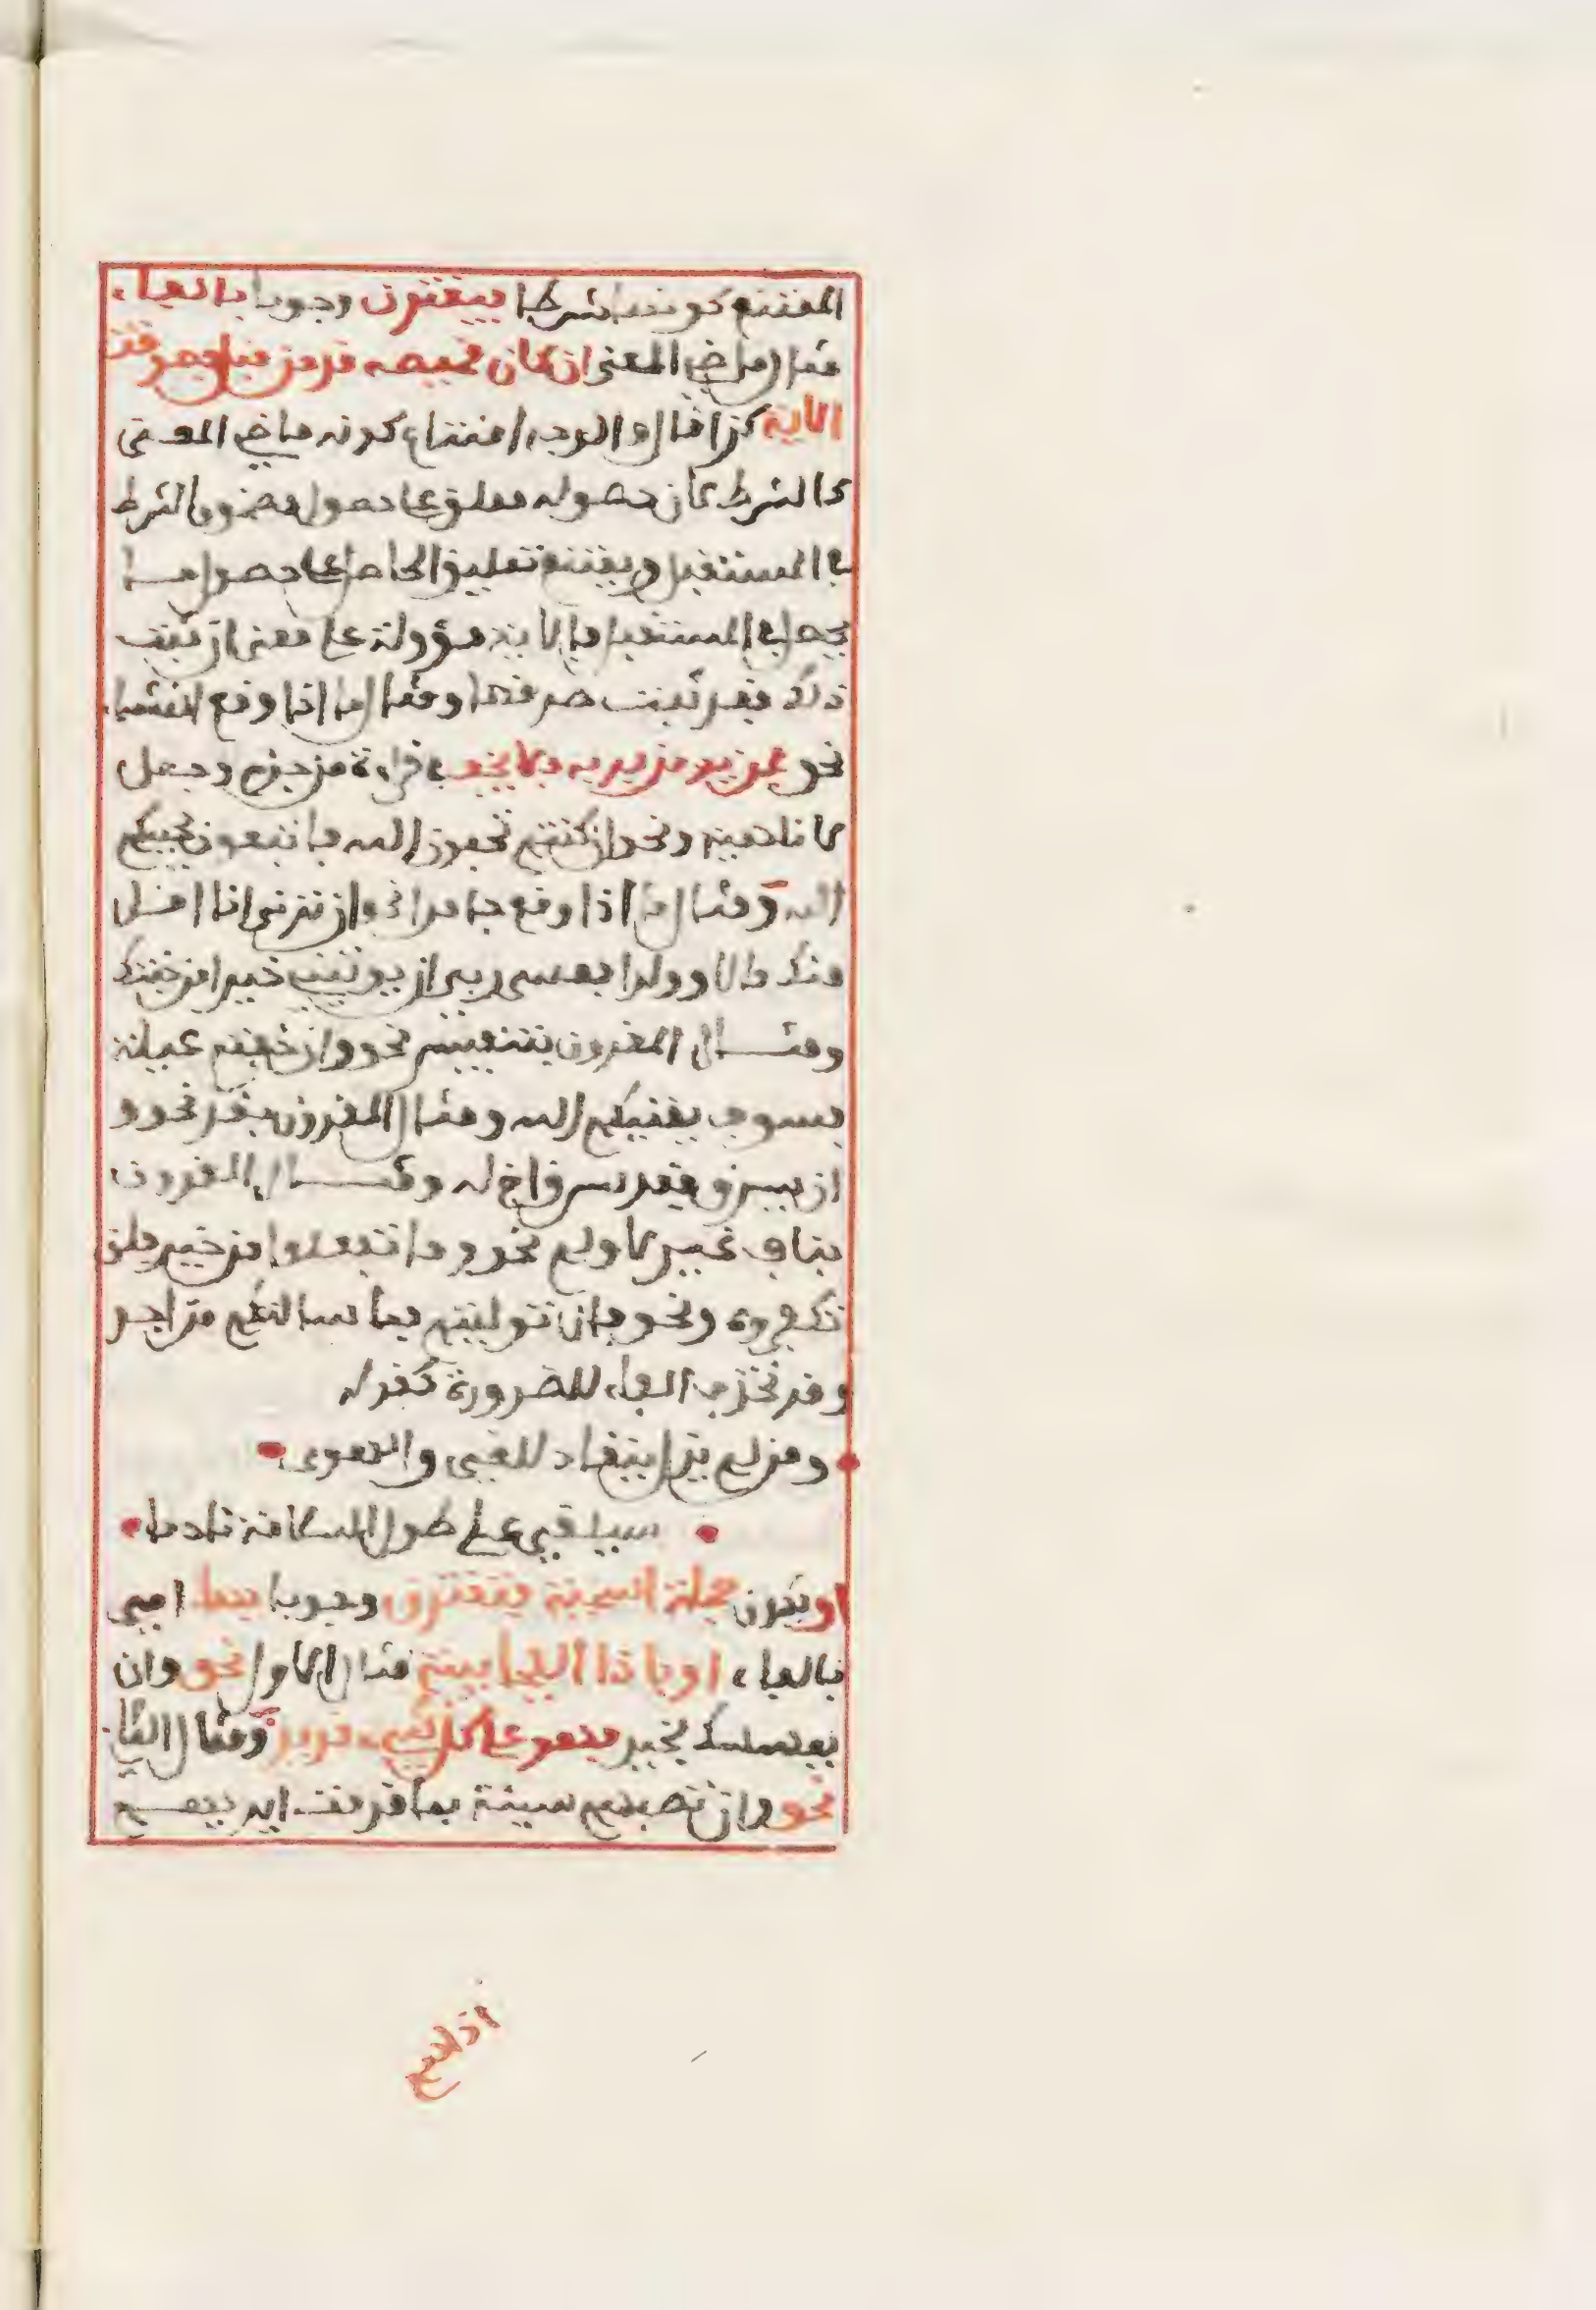 الممتنع كونها شرطا فيقترن وجوبا بالفاء
مثال ماضي المعنى ان كان قميصه قد من قبل فصدقت
الآية كذا قال والوجه امتناع كونه ماضي المعنى
كالشرط لان حصوله معلق على حصول مضمون الشرط
في المستقبل ويمتنع تعليق الحاصل على حصول ما
يحصل في المستقبل والآية مؤولة على معنى ان يثبت
ذلك فقد ثبت صدقها ومثال ما اذا وقع انشاء
نحو فمن يومن بربه فلا يخف في قراءة من جزم وجعل
لا ناهية ونحو ان كنتم تحبون الله فاتبعوني يحببكم
الله ومثال ما اذا وقع جامدا نحو ان ترني انا اقل
منك مالا وولدا فعسى ربي ان يوتيني خيرا من جنتك
ومثال المقرون بتنفيس نحو وان خفتم عيلة
فسوف يغنيكم الله ومثال المقرون بقد نحو
ان يسرق فقد سرق اخ له ومثال المقرون
بناف غير لا ولم نحو وما تفعلوا من خير فلن
تكفروه ونحو فان توليتم فما سالتكم من اجر
وقد تحذف الفاء للضرورة كقوله
ومن لم يزل ينقاد للغي والهوى
سيلقى على طول السلامة نادما
او يكون جملة اسمية فتقترن وجوبا بها اي
بالفاء او باذا الفجايية مثال الاول نحو وان
يمسسك بخير فهو على كل شيء قدير ومثال الثاني
نحو وان تصبهم سيئة بما قدمت ايديهم
اذا هم